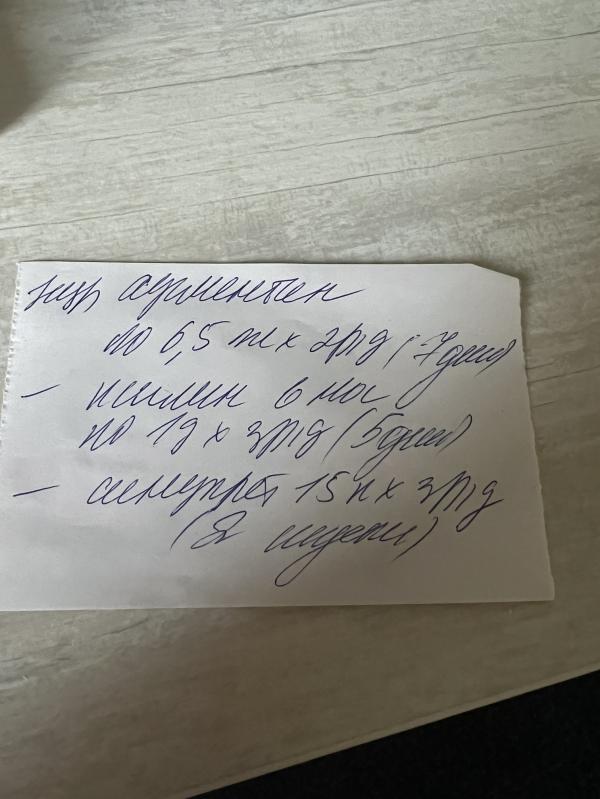 аугментин
по 6,5 мл х 2р/д (7 дней)
- ксилен в нос
по 1д х 3р/д (5 дней)
- синупрет 15к х 3р/д
(2 недели)